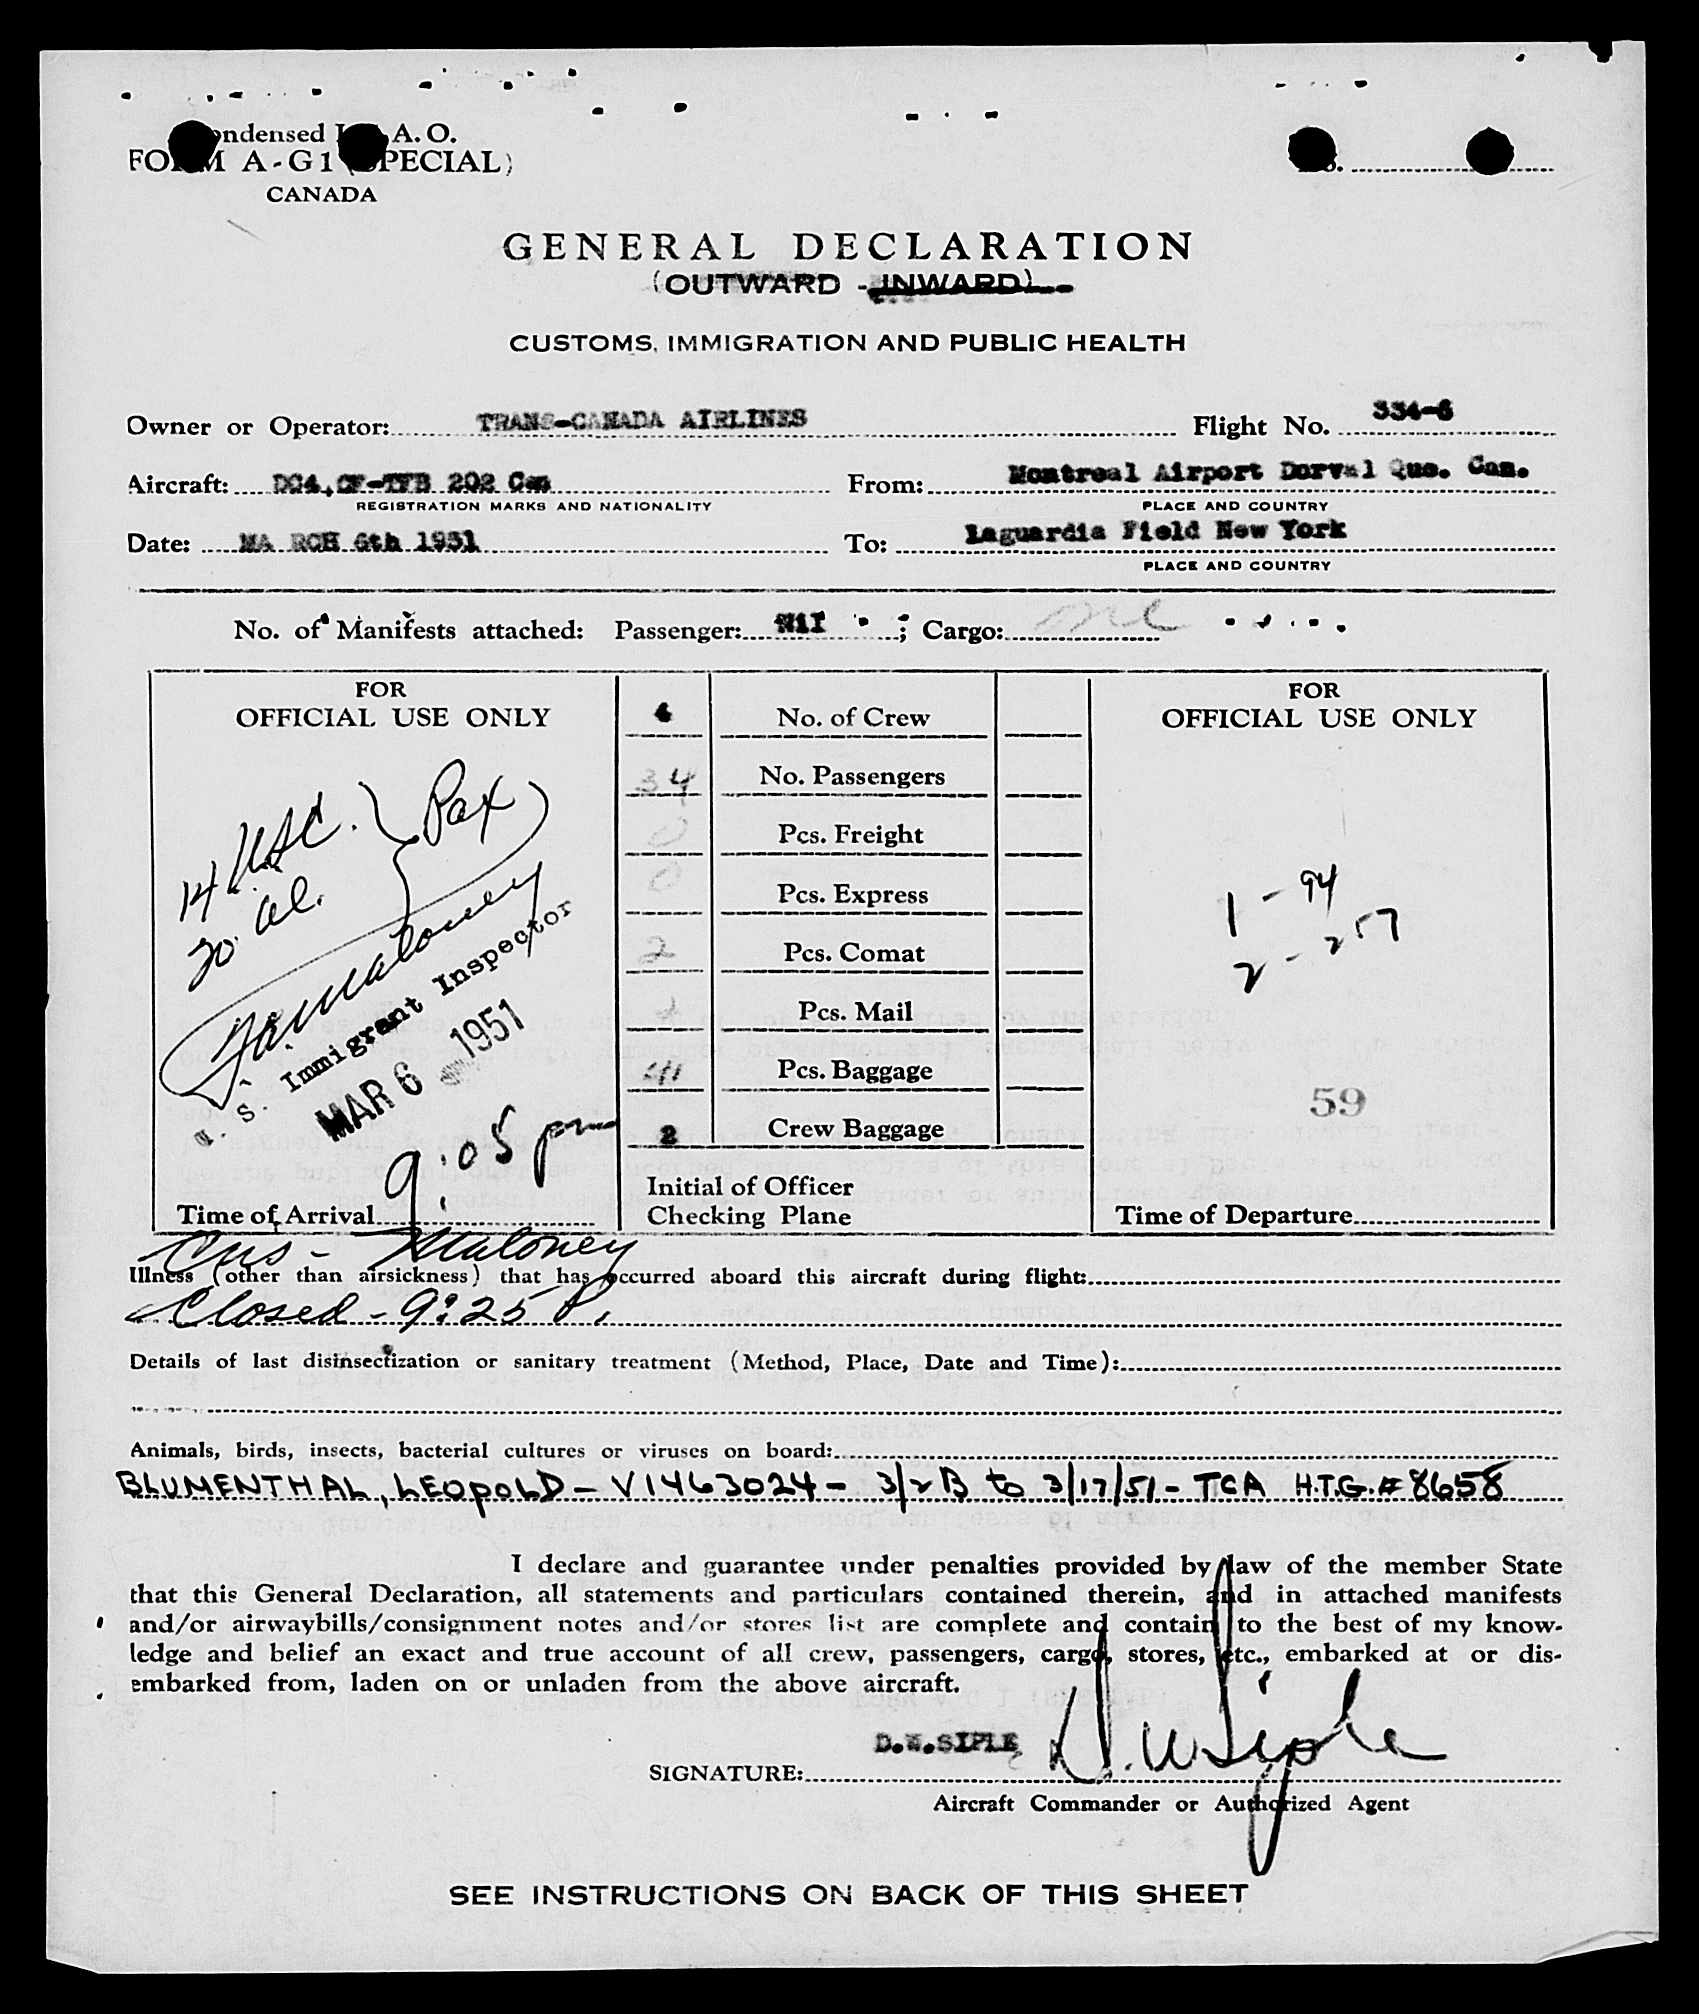 ondensed I. A. O.
FORM A-G1 (SPECIAL)
CANADA
GENERAL DECLARATION
(OUTWARD - INWARD)
CUSTOMS, IMMIGRATION AND PUBLIC HEALTH
Owner or Operator: TRANS-CANADA AIRLINES Flight No. 334-6
Aircraft: DC4, CF-TFB 202 Can From: Montreal Airport Dorval Que. Can.
REGISTRATION MARKS AND NATIONALITY PLACE AND COUNTRY
Date: MA RCH 6th 1951 To: Laguardia Field New York
PLACE AND COUNTRY
No. of Manifests attached: Passenger: Nil ; Cargo:
FOR
OFFICIAL USE ONLY
14 USC. } Pax
20 al.
Maloney
U. S. Immigrant Inspector
MAR 6 1951
9:05 pm
Time of Arrival
No. of Crew
34 No. Passengers
0 Pcs. Freight
0 Pcs. Express
2 Pcs. Comat
Pcs. Mail
Pcs. Baggage
2 Crew Baggage
Initial of Officer
Checking Plane
FOR
OFFICIAL USE ONLY
1 - 94
2 - 257
59
Time of Departure
Cus - Maloney
Illness (other than airsickness) that has occurred aboard this aircraft during flight:
Closed - 9:25 P.
Details of last disinsectization or sanitary treatment (Method, Place, Date and Time):
Animals, birds, insects, bacterial cultures or viruses on board:
BLUMENTHAL, LEOPOLD - V1463024 - 3/2 B to 3/17/51 - TCA H.T.G. # 8658
I declare and guarantee under penalties provided by law of the member State
that this General Declaration, all statements and particulars contained therein, and in attached manifests
and/or airwaybills/consignment notes and/or stores list are complete and contain to the best of my know-
ledge and belief an exact and true account of all crew, passengers, cargo, stores, etc., embarked at or dis-
embarked from, laden on or unladen from the above aircraft.
D.W.SIPLE D. W Siple
SIGNATURE:
Aircraft Commander or Authorized Agent
SEE INSTRUCTIONS ON BACK OF THIS SHEET